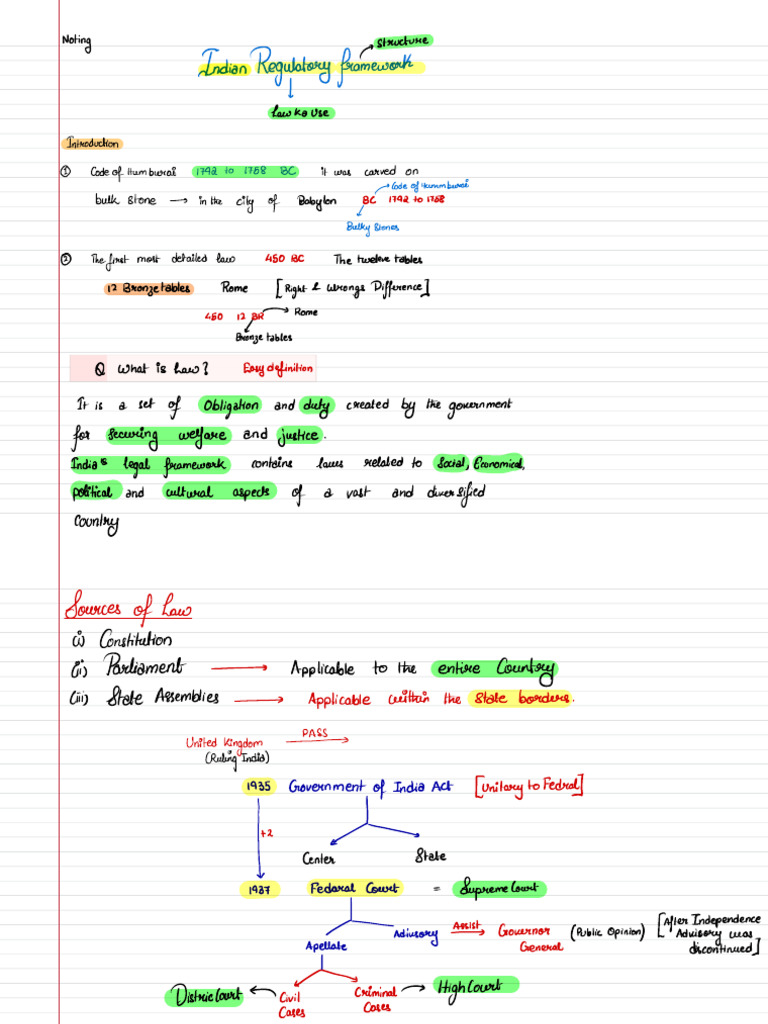 Noting
Structure
Indian Regulatory framework
Law ka use
Introduction
① Code of Humburai 1792 to 1758 BC it was carved on
Code of Hummburai
bulk stone → in the city of Babylon BC 1792 to 1758
Bulky Stones
② The first most detailed law 450 BC The twelve tables
12 Bronze tables Rome [Right & Wrongs Difference]
450 12 BR Rome
Bronze tables
Q What is Law? Easy definition
It is a set of Obligation and duty created by the government
for securing welfare and justice.
India's legal framework contains laws related to Social, Economical,
political and cultural aspects of a vast and diversified
Country
Sources of Law
(i) Constitution
(ii) Parliament → Applicable to the entire Country
(iii) State Assemblies → Applicable within the State borders.
United Kingdom PASS →
(Ruling India)
1935 Government of India Act [Unitary to Fedral]
+2
Center State
1937 Federal Court = Supreme Court
Apellate Adiusory Assist → Governor General (Public Opinion) [After Independence Advisory was discontinued]
Distric Court ← Civil Cases Criminal Cases → High Court